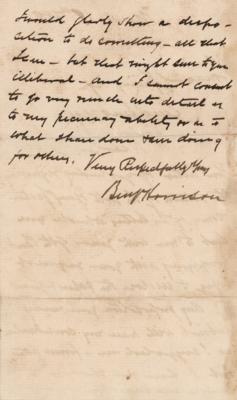 I would gladly show a dispo-
sition to do something – all that
I can – but that might seem to you
illiberal – and I cannot consent
to go very much into detail as
to my pecuniary ability or as to
what I have done & am doing
for others.
Very Respectfully Yours
Benj Harrison